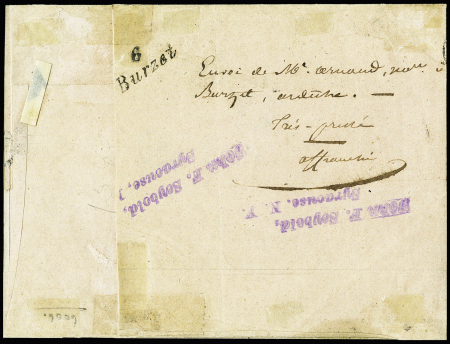 6
Burzet
Envoi de Mr. Arnaud, not. à
Burzet, ardèche. —
Très-pressé
affranchi
John F. Seybold,
Syracuse,
John F. Seybold,
Syracuse. N. Y.